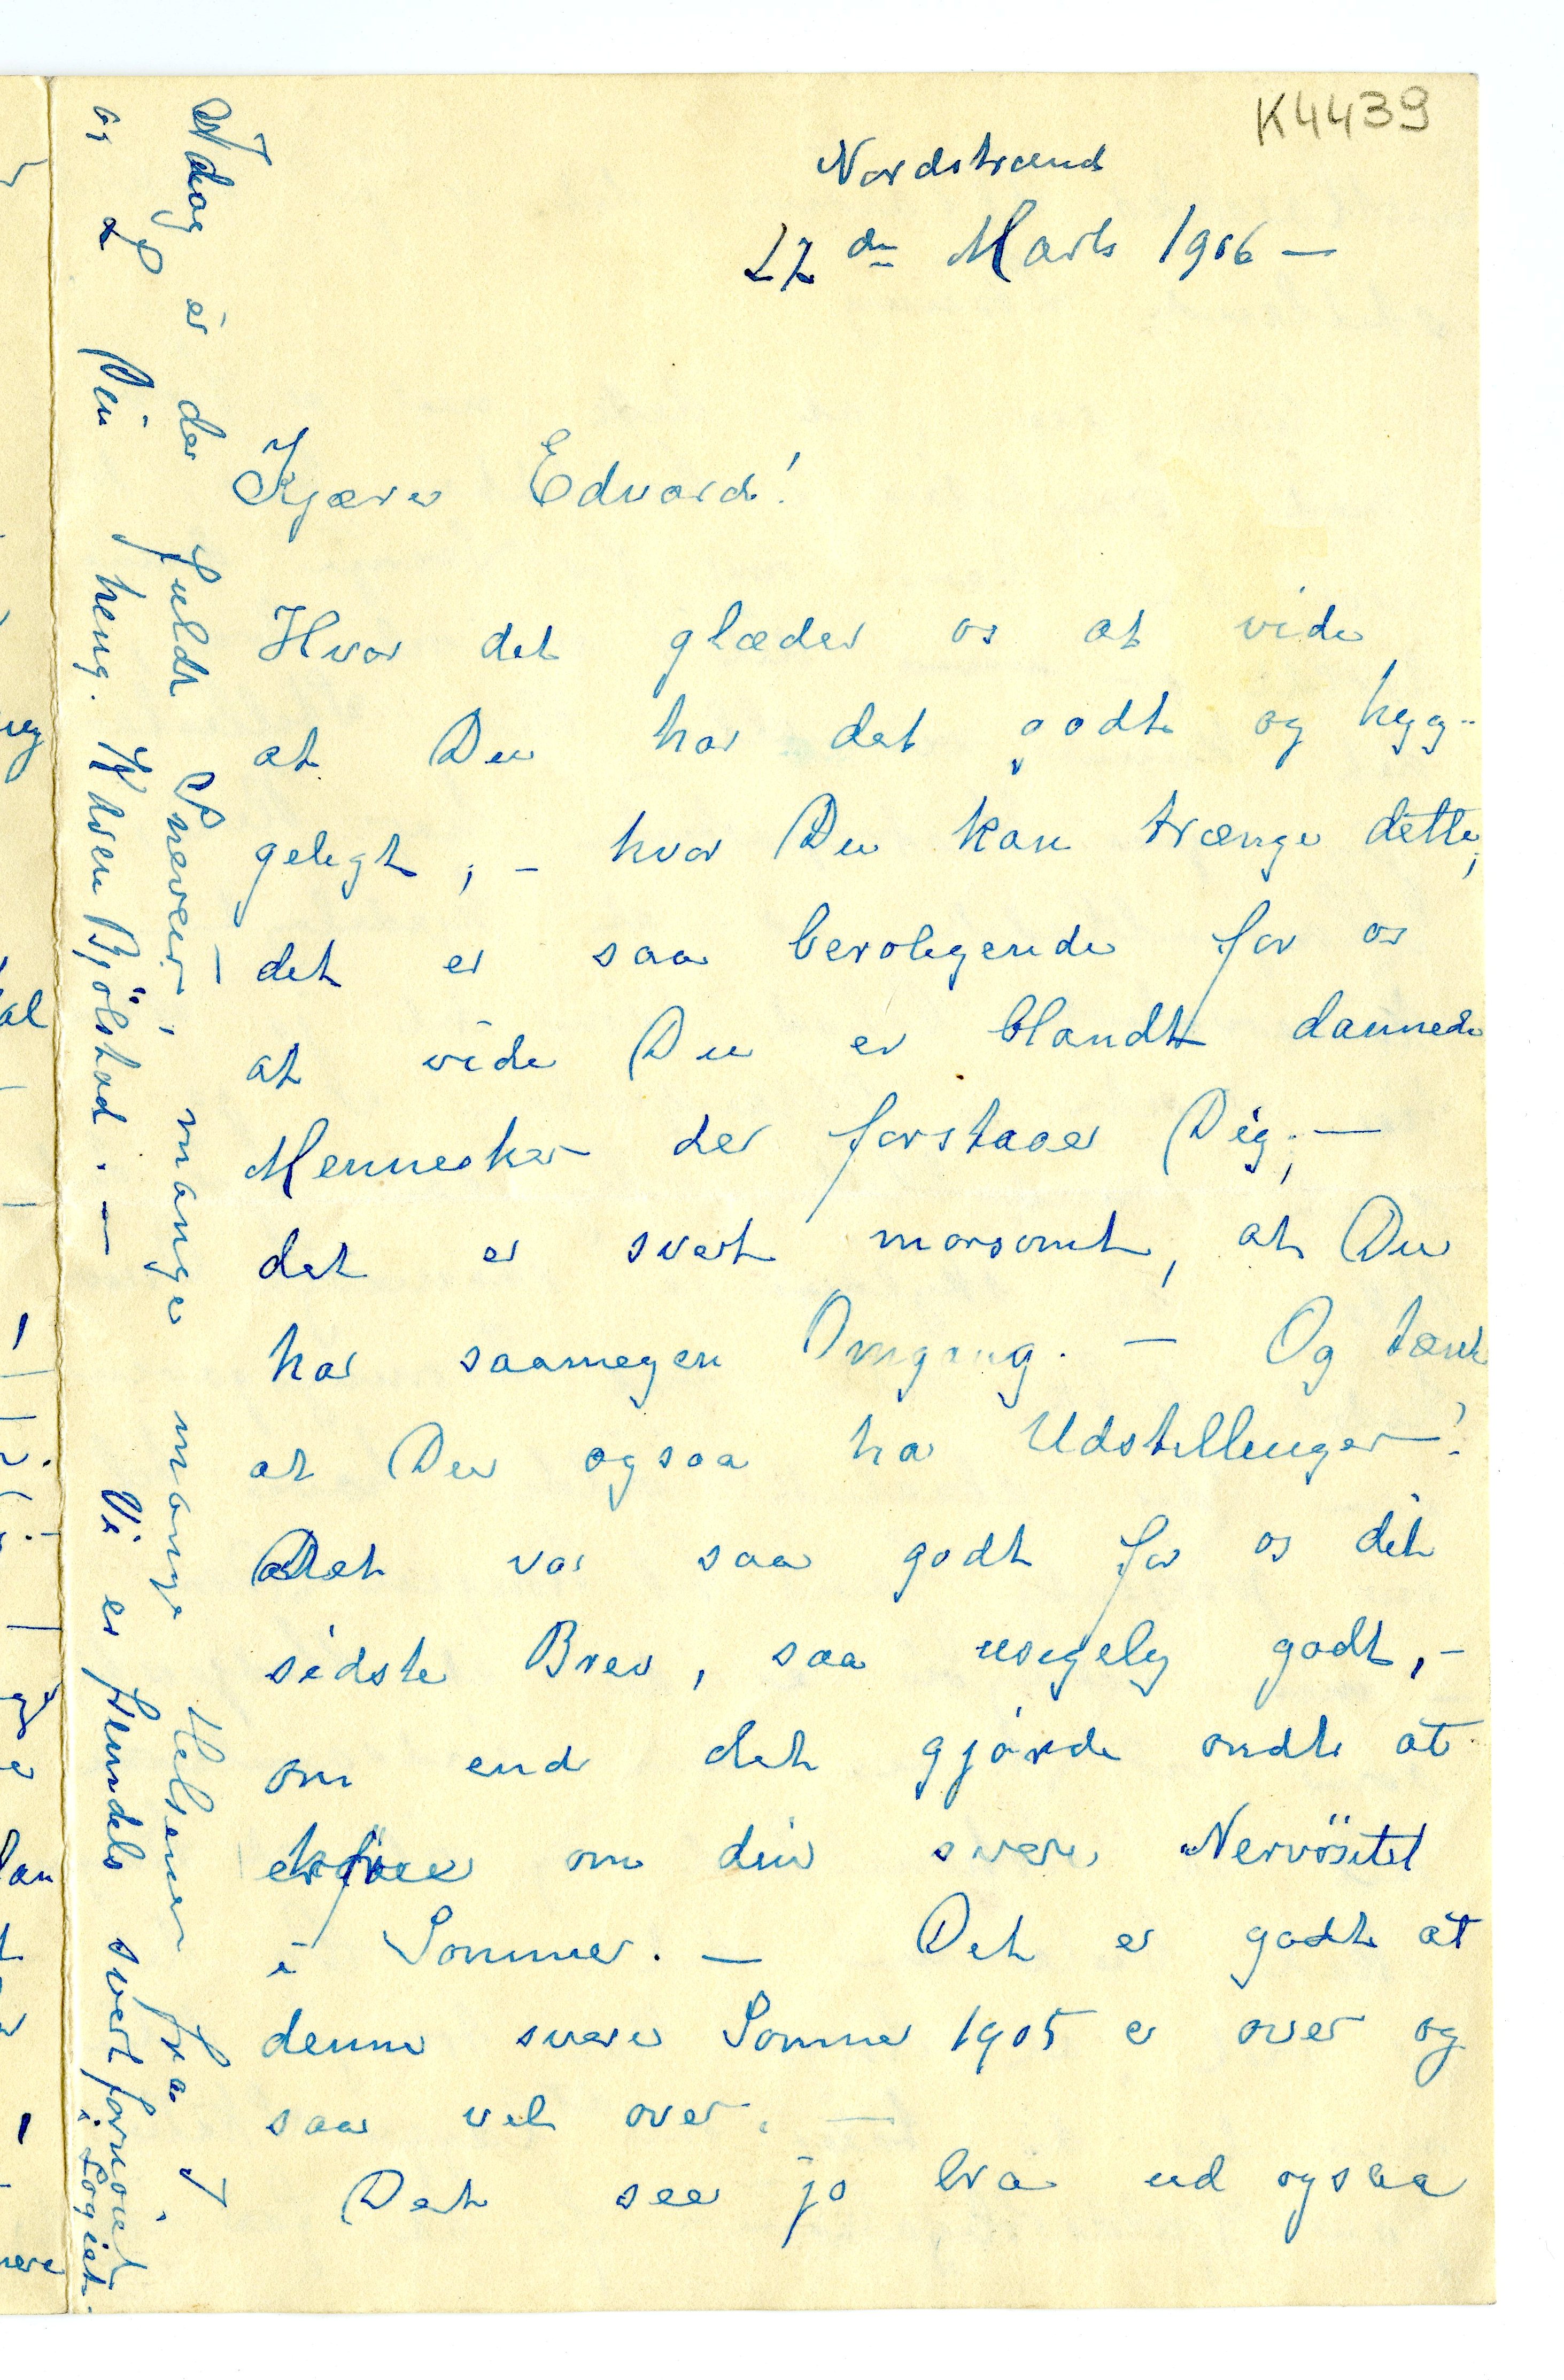 K4439
Nordstrand
27 de Marts 1906 —
Kjære Edvard!
Hvor det glæder os at vide
at Du har det godt og hyg-
geligt, – hvor Du kan trænge dette,
det er saa beroligende for os
at vide Du er blandt dannede
Mennesker der forstaaer Dig; —
det er svært morsomt, at Du
har saamegen Omgang. — Og tænk
at Du ogsaa ha Udstillinger!
Det var saa godt for os dit
sidste Brev, saa usigelig godt, –
om end det gjörde ondt at
erfare om din svære Nervösitet
i Sommer. — Det er godt at
denne svære Sommer 1905 er over og
saa vel over. —
Det seer jo bra ud ogsaa
Idag er der fuldt Sneveir, mange mange Hilsener fra I
og L Din heng. K Bjölstad. — Vi er fremdels svært fornöiet
i Logiet.